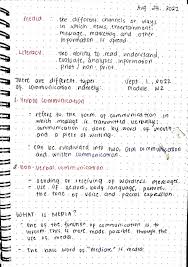 Aug 26, 2022
Media - the different channels or ways
in which news, entertainment,
message, marketing and other
information is spread
Literacy - the ability to read, understand,
evaluate, analyze information
print / non print.
There are different types Sept. 1, 2022
of communication namely: Module #2
1. Verbal communication
- refers to the form of communication in
which message is transmitted verbally;
communication is done by word of mouth
and a piece of writing.
- can be evaluated into two, oral communication
and written communication
2. Non-verbal communication
- sending or receiving of wordless messages.
- use of actions, body language, posture,
the tone of voice and facial expression.
WHAT IS MEDIA?
- one of the of communication is the
This is most made possible through the
use of media.
- The basic word of "medium" is media.